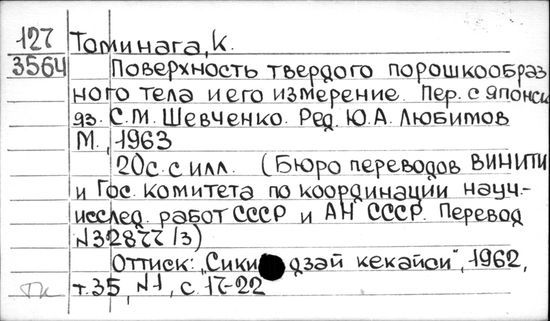 127 Томинага, К.
3564 Поверхность твердого порошкообраз
ного тела и его измерение. Пер. с японск
яз. С.М. Шевченко. Ред. Ю.А. Любимов
М., 1963
20с. с илл. (Бюро переводов ВИНИТИ
и Гос. комитета по координации науч.-
исслед. работ СССР и АН СССР. Перевод
N32877/3)
Оттиск: „Сики дзай кекайси", 1962,
т.35, N1, с. 17-22